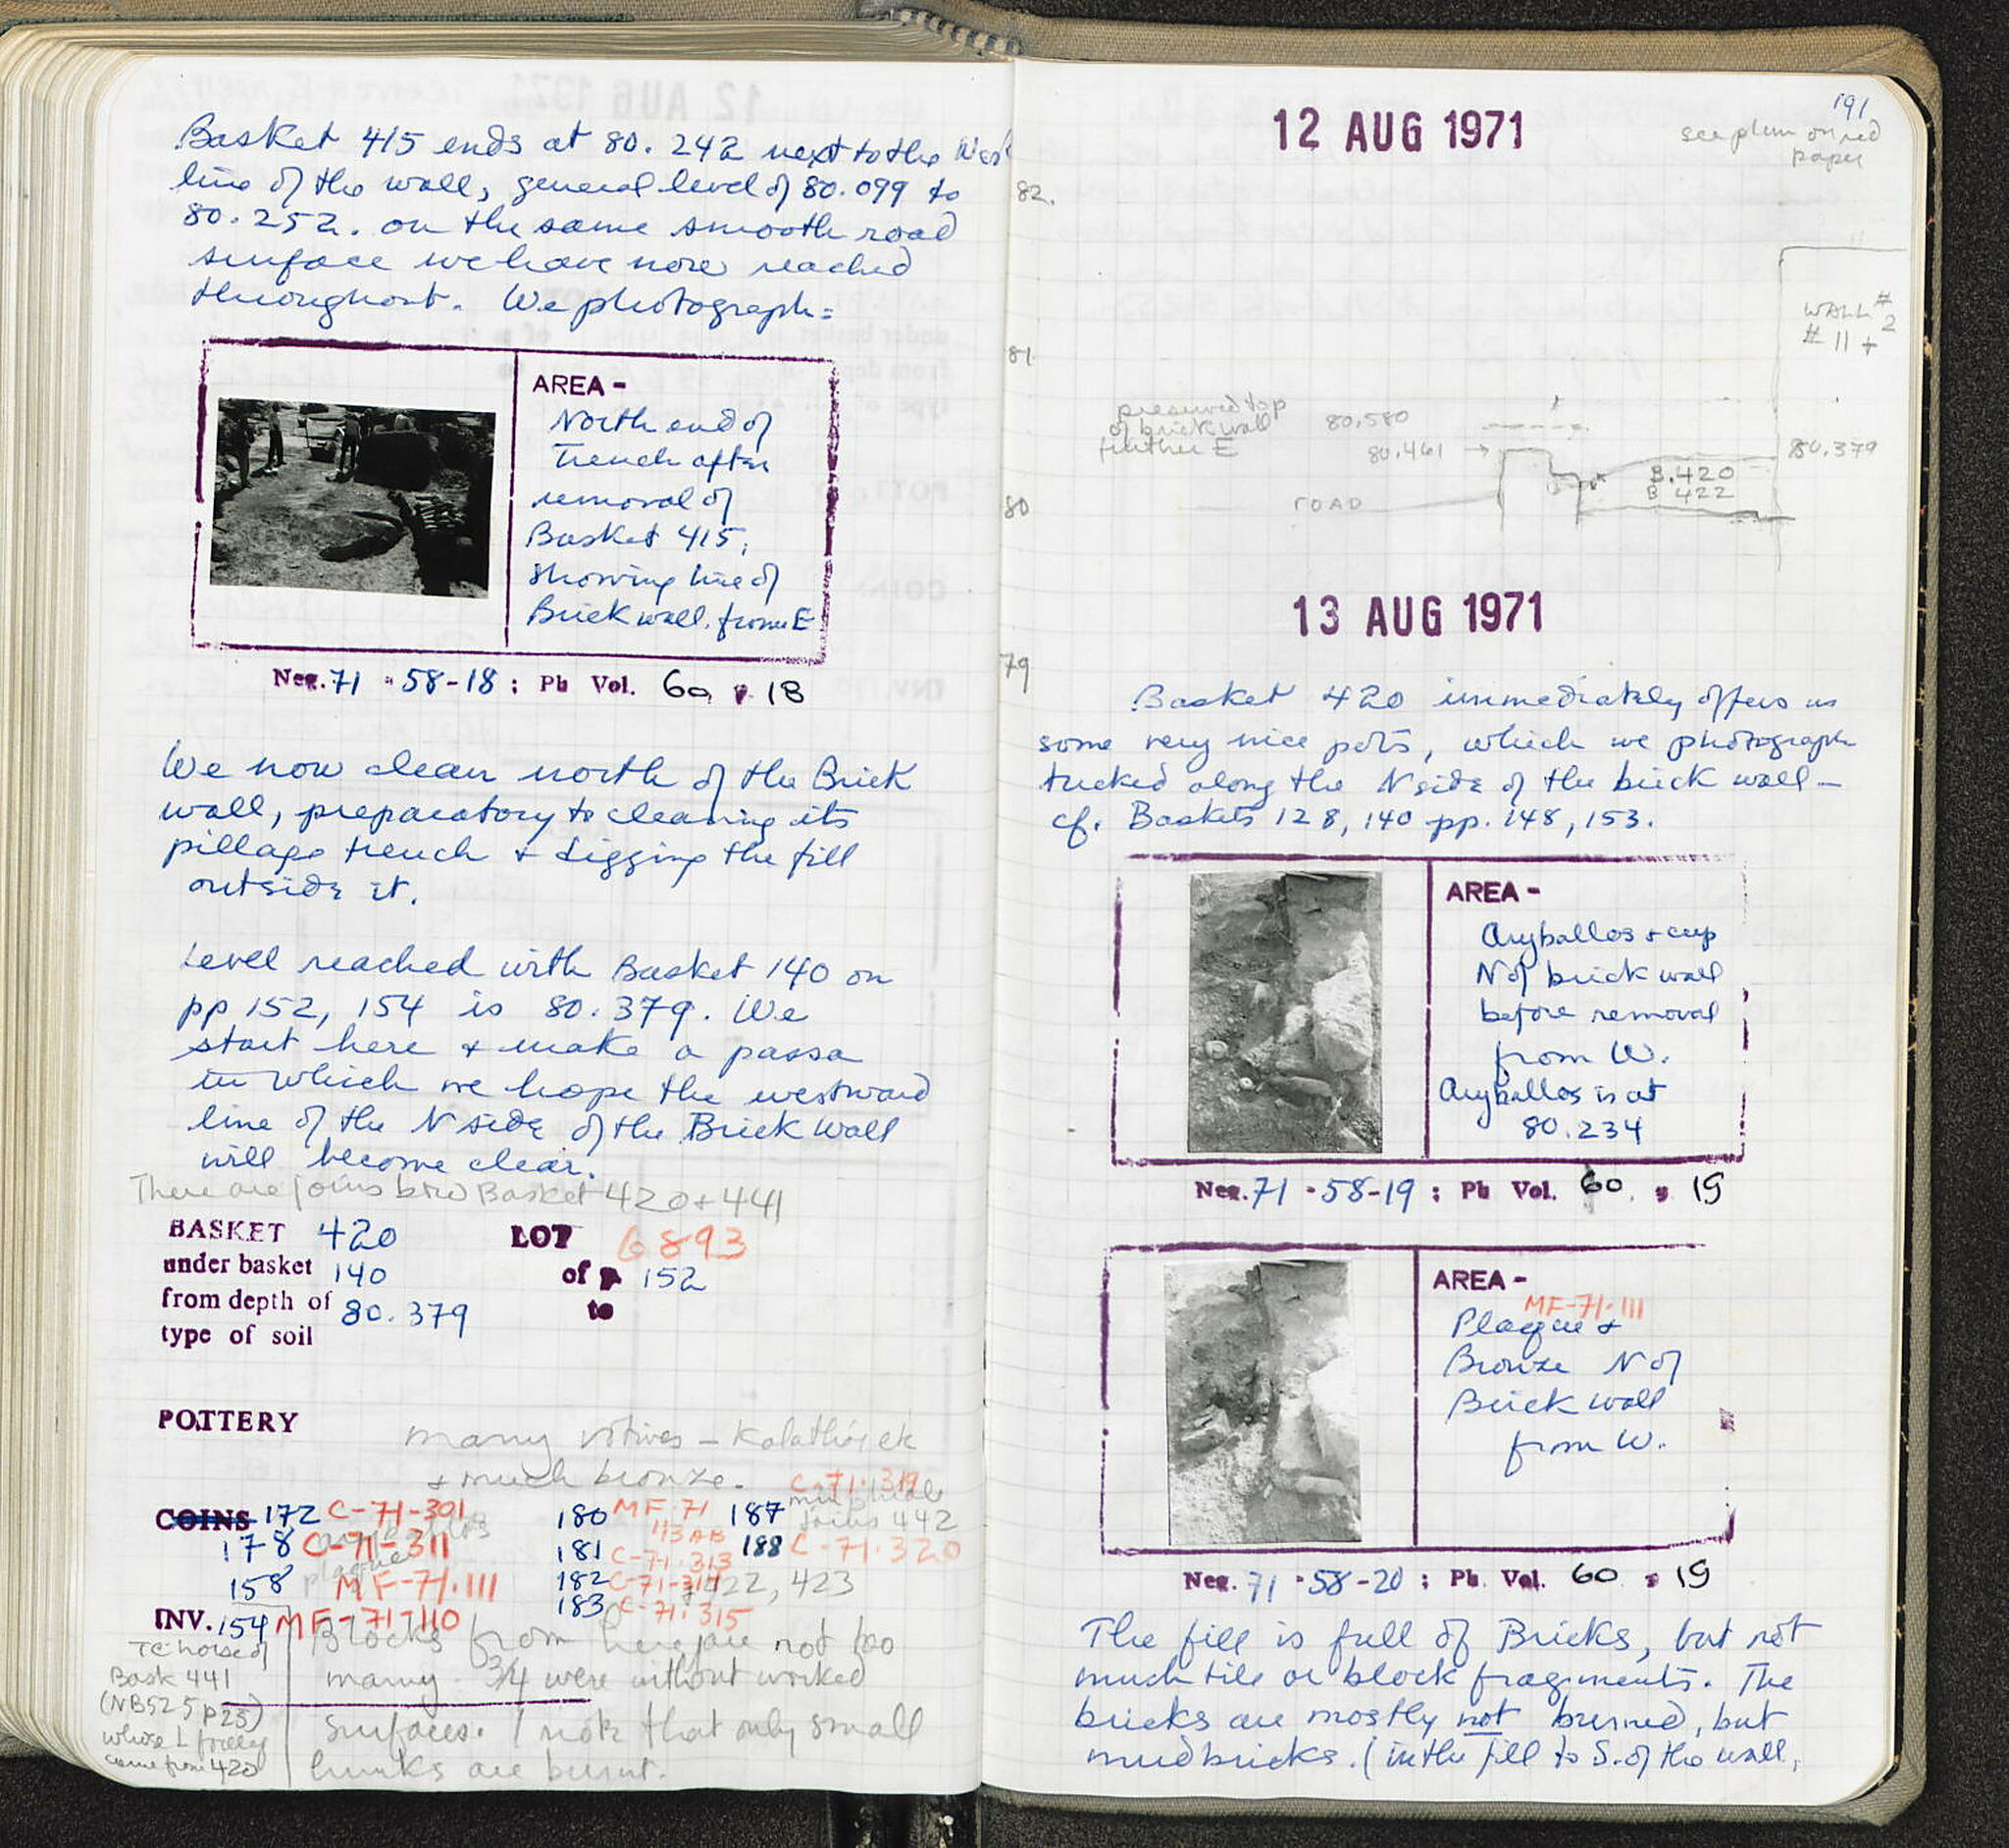 Basket 415 ends at 80.242 next to the West
line of the wall, general level of 80.099 to
80.252. on the same smooth road
surface we have now reached
throughout. We photograph:
AREA -
North end of
Trench after
removal of
Basket 415,
showing line of
Brick wall. from E
Neg. 71 - 58-18 ; Ph Vol. 60 p 18
We now clean north of the Brick
wall, preparatory to cleaning its
pillage trench + digging the fill
outside it.
Level reached with Basket 140 on
pp 152, 154 is 80.379. We
start here + make a passa
in which we hope the westward
line of the N side of the Brick wall
will become clear.
There are joins btw Basket 420 + 441
BASKET 420 LOT 6893
under basket 140 of p 152
from depth of 80.379 to
type of soil
POTTERY
many votives - Kalathisk
+ much bronze.
C-71-319
COINS 172 C-71-301 180 MF-71 187
113 AB joins 442
178 C-71-311 181 C-71-313 188 C-71-320
plaque
158 MF-71-111 182 C-71-314 422, 423
183 C-71-315
INV. 154 MF-71-110
Blocks from here are not too
many - 3/4 were without worked
surfaces. I note that only small
hunks are burnt.
TC horse of
Bask 441
(NB525 p25)
whose L foreleg
came from 420
12 AUG 1971
191
see plan on red
paper
82.
81
80
79
WALL #
# 11 + 2
preserved top
of brick wall
further E
80.580
80.461 →
80.379
B.420
B 422
ROAD
13 AUG 1971
Basket 420 immediately offers us
some very nice pots, which we photograph
tucked along the N side of the brick wall -
cf. Baskets 128, 140 pp. 148, 153.
AREA -
Aryballos + cup
N of brick wall
before removal
from W.
Aryballos is at
80.234
Neg. 71 - 58-19 ; Ph Vol. 60 p 19
AREA -
MF-71-111
Plaque +
Bronze N of
Brick wall
from W.
Neg. 71 - 58-20 ; Ph. Vol. 60 p 19
The fill is full of Bricks, but not
much tile or block fragments. The
bricks are mostly not burned, but
mudbricks. (in the fill to S. of the wall,